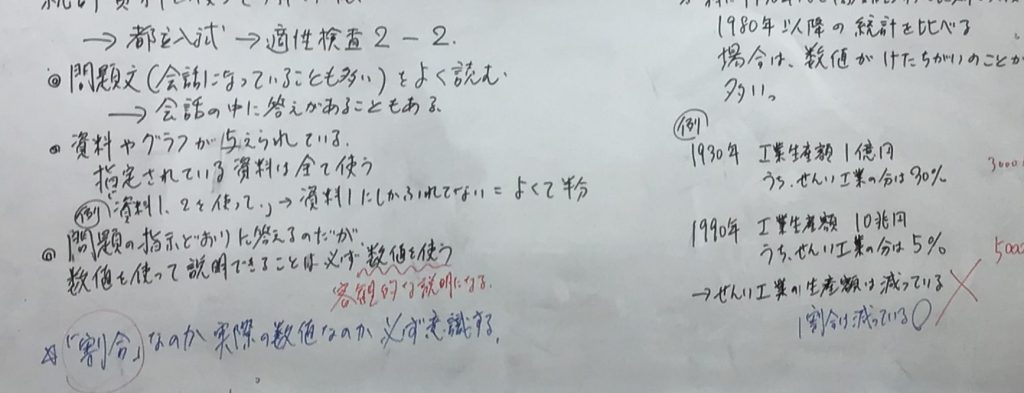 → 都立入試 → 適性検査2-2.
◎ 問題文(会話になっていることも多い)をよく読む
→ 会話の中に答えがあることもある.
◎ 資料やグラフが与えられている.
指定されている資料は全て使う
(例)「資料1、2を使って.」→ 資料1にしかふれてない = よくて半分
◎ 問題の指示どおりに答えるのだが
数値を使って説明できることは必ず数値を使う
客観的な説明になる.
☆「割合」なのか実際の数値なのか必ず意識する.
1980年以降の統計を比べる
場合は、数値がけたちがいのことが
多い。
(例)
1930年 工業生産額 1億円
うち、せんい工業の分は30%
3000
1990年 工業生産額 10兆円
うち、せんい工業の分は5%
5000
→ せんい工業の生産額は減っている ×
割合は減っている ○